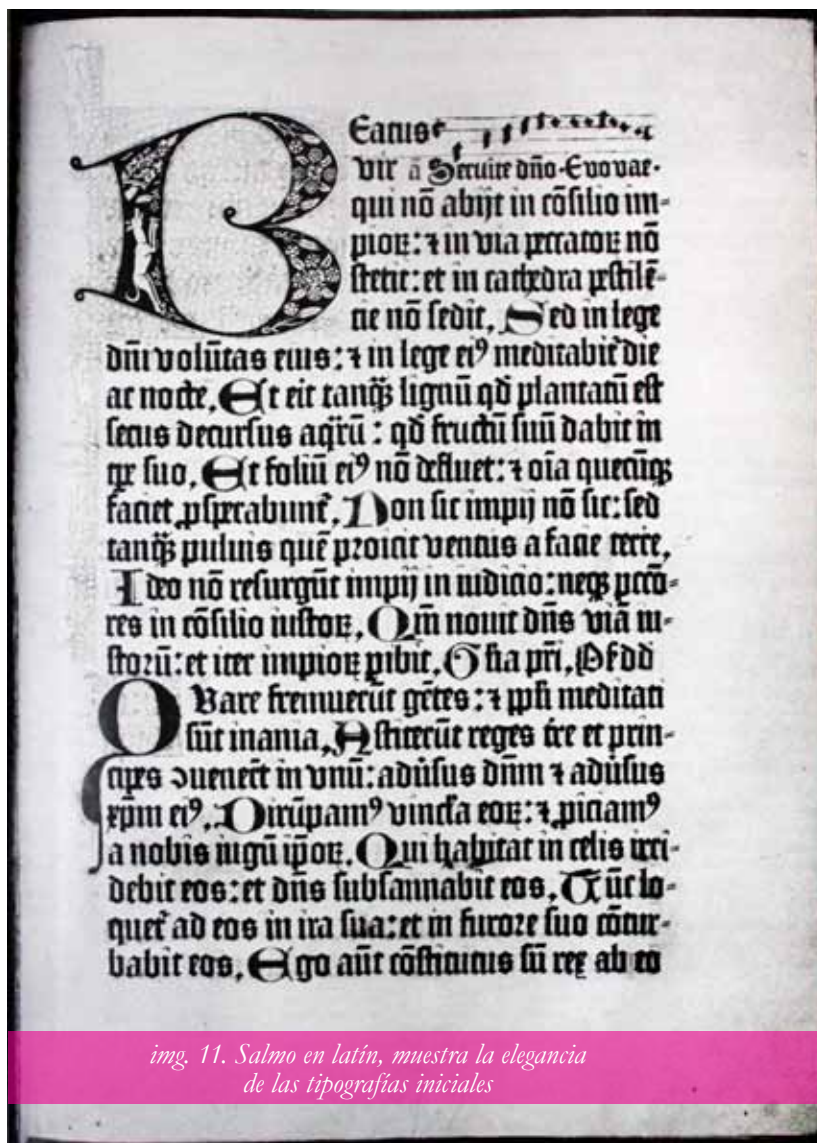 Beatus
vir ā Seruite dño Evovae
qui nō abijt in cōsilio im-
pioꝝ: ⁊ in via peccatoꝝ nō
stetit: et in cathedra pestilē-
cie nō sedit, Sed in lege
dñi volūtas eius: ⁊ in lege eiꝰ meditabit᷑ die
ac nocte, Et erit tanqᷓ lignū qd̄ plantatū est
secus decursus aqᷓrū: qd̄ fructū suū dabit in
tꝑe suo, Et foliū eiꝰ nō defluet: ⁊ oīa quecūqꝫ
faciet ꝓsperabunt᷑, Non sic impij nō sic: sed
tanqᷓ puluis quē proicit ventus a facie terre,
Ideo nō resurgūt impij in iudicio: neqꝫ pccō-
res in cōsilio iustoꝝ, Qm̄ nouit dñs viā iu-
storū: et iter impioꝝ ꝑibit, Gl̄ia pr̄i, Ps̄ dd
Quare fremuerūt gētes: ⁊ ppl̄i meditati
sūt inania, Astiterūt reges tr̄e et prin-
cipes ↄuenerūt in vnū: adūsus dñm ⁊ adūsus
xp̄m eiꝰ, Dirūpamꝰ vincl̄a eoꝝ: ⁊ ꝓiciamꝰ
a nobis iugū ip̄oꝝ, Qui habitat in celis irri-
debit eos: et dñs subsannabit eos, Tūc lo-
quet᷑ ad eos in ira sua: et in furore suo cōtur-
babit eos, Ego aūt cōstitutus sū rex ab eo
img. 11. Salmo en latín, muestra la elegancia
de las tipografías iniciales